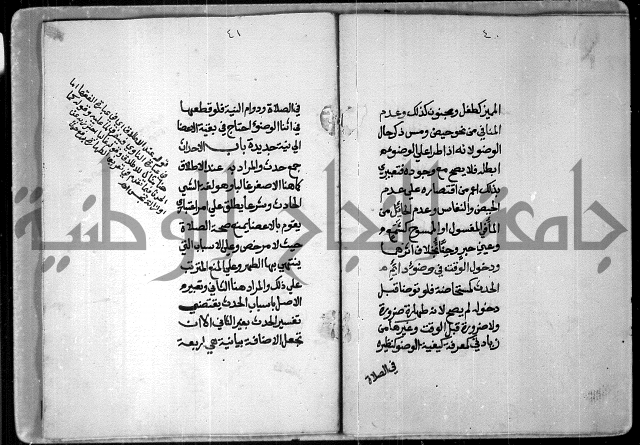 ٤٠
المميز كطفل ومجنون كذلك وعدم
المنافي من نحو حيض ومس ذكر حال
الوضوء لانه اذا طرا على الوضوء
ابطله فلا يصح مع وجوده فتعبيري
بذلك اعم من اقتصاره على عدم
الحيض والنفاس وعدم الحائل من
الماء في المغسول او الممسوح كشحم
وعين حبر وحنا بخلاف اثرهما
ودخول الوقت في وضوء دائم
الحدث كمستحاضة فلو توضا قبل
دخوله لم يصح لانه طهارة ضرورة
ولا ضرورة قبل الوقت وغيرها من
زيادتي لمعرفة كيفية الوضوء كنظيره
في الصلاة
٤١
في الصلاة ودوام النية فلو قطعها
في اثنا الوضوء احتاج في بقية الاعضا
الى نية جديدة باب الاحداث
جمع حدث والمراد به عند الاطلاق
كما هنا الاصغر غالبا وهو لغة الشي
الحادث وشرعا يطلق على امر اعتباري
يقوم بالاعضا يمنع صحة الصلاة
حيث لا مرخص وعلى الاسباب التي
ينتهي بها الطهر وعلى المنع المترتب
على ذلك والمراد هنا الثاني وتعبيرهم
الاصل باسباب الحدث يقتضي
تفسير الحدث بغير الثاني الا ان
تجعل الاضافة بيانية هي اربعة
قوله عند الاطلاق اي في عبارة الفقها اما
جامعة النجاح الوطنية